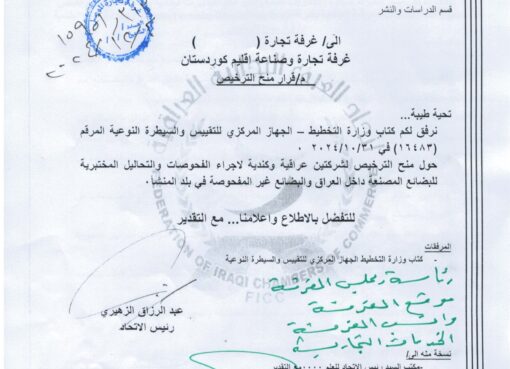 قسم الدراسات والنشر
الى/ غرفة تجارة (                )
غرفة تجارة وصناعة إقليم كوردستان
م/قرار منح الترخيص
تحية طيبة...
نرفق لكم كتاب وزارة التخطيط – الجهاز المركزي للتقييس والسيطرة النوعية المرقم
(١٦٤٨٣) في ٢٠٢٤/١٠/٣١ ٠
حول منح الترخيص لشركتين عراقية وكندية لاجراء الفحوصات والتحاليل المختبرية
للبضائع المصنعة داخل العراق والبضائع غير المفحوصة في بلد المنشأ٠
للتفضل بالاطلاع واعلامنا... مع التقدير
المرفقات
- كتاب وزارة التخطيط الجهاز المركزي للتقييس والسيطرة النوعية
FEDERATION OF IRAQI CHAMBERS OF COMMERCE
FICC
عبد الرزاق الزهيري
رئيس الاتحاد
موقع الغرفة
الخدمات التجارية
نسخة منه الى/
- مكتب السيد رئيس الاتحاد للعلم ٠٠٠٠مع التقدير